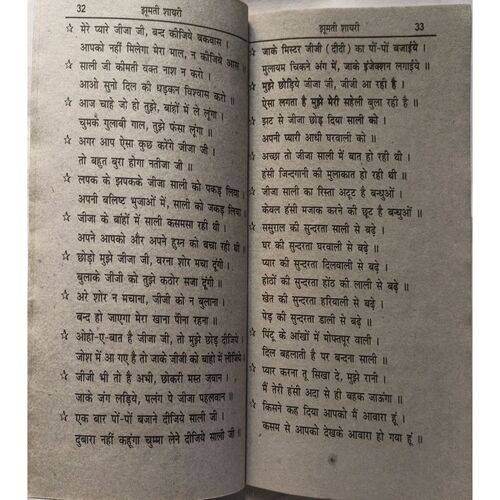 32
झूमती शायरी
☆ मेरे प्यारे जीजा जी, बन्द कीजिये बकवास ।
आपको नहीं मिलेगा मेरा माल, न कीजिये आस ॥
☆ साली जी कीमती वक्त नाश न करो ।
आओ सुनो दिल की धड़कन विश्वास करो ॥
☆ आज चाहे जो हो तुझे, बांहों में ले लूंगा ।
चुमकै गुलाबी गाल, तुझे फंसा लूंगा ॥
☆ अगर आप ऐसा कुछ करेंगे जीजा जी ।
तो बहुत बुरा होगा नतीजा जी ॥
☆ लपक के झपकके जीजा साली को पकड़ लिया ।
अपनी बलिष्ट भुजाओं में, साली को जकड़ लिया ॥
☆ जीजा के बांहों में साली कसमसा रही थी ।
अपने आपको और अपने हुस्न को बचा रही थी ॥
☆ छोड़ो मुझे जीजा जी, वरना शोर मचा दूंगी ।
बुलाके जीजी को तुझे कठोर सजा दूंगी ॥
☆ अरे शोर न मचाना, जीजी को न बुलाना ।
बन्द हो जाएगा मेरा खाना पीना रहना ॥
☆ ओहो-ए-बात है जीजा जी, तो मुझे छोड़ दीजिये ।
जोश में आ गए है तो जाके जीजी को बांहो में लीजिये ॥
☆ जीजी भी तो है अभी, छोकरी मस्त जवान ।
जाके जंग लड़िये, पलंग पे जीजा पहलवान ॥
☆ एक बार पों-पों बजाने दीजिये साली जी ।
दुबारा नहीं कहूंगा चुम्मा लेने दीजिये साली जी ॥
झूमती शायरी
33
जाके मिस्टर जीजी (दीदी) का पों-पों बजाईये ।
मुलायम चिकने अंग में, जाके इंजेक्शन लगाईये ॥
☆ मुझे छोड़िये जीजा जी, जीजी आ रही है ।
ऐसा लगता है मुझे मेरी सहेली बुला रही है ॥
☆ झट से जीजा छोड़ दिया साली को ।
अपनी प्यारी आधी घरवाली को ॥
☆ अच्छा तो जीजा साली में बात हो रही थी ।
हंसी जिन्दगानी की मुलाकात हो रही थी ॥
☆ जीजा साली का रिस्ता अटूट है बन्धुओं ।
केवल हंसी मजाक करने की छूट है बन्धुओं ॥
☆ ससुराल की सुन्दरता साली से बढ़े ।
घर की सुन्दरता घरवाली से बढ़े ॥
☆ प्यार की सुन्दरता दिलवाली से बढ़े ।
होठों की सुन्दरता होंठ की लाली से बढ़े ॥
☆ खेत की सुन्दरता हरियाली से बढ़े ।
पेड़ की सुन्दरता डाली से बढ़े ॥
☆ पिंटू के आंखों में
दिल बहलाती है पर बन्दना साली ॥
☆ प्यार करना तू सिखा दे, मुझे रानी ।
मैं तेरी हंसी अदा से ही बहक जाऊंगा ॥
☆ किसने कह दिया आपको मैं आवारा हूं ।
कसम से आपको देखके आवारा हो गया हूं ॥